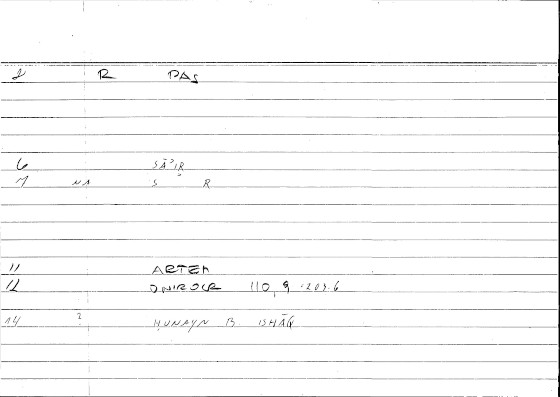 2 R PAS
6 SĀʾIR
7 NA S R
11 ARTEM
12 ONIROCR 110,9 -209.6
14 ? ḤUNAYN B. ISḤĀQ